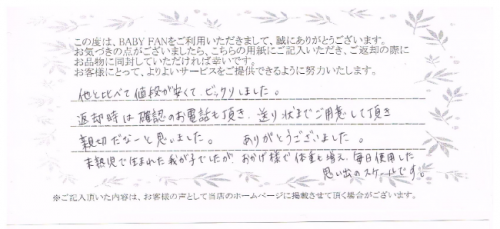 この度は、BABY FANをご利用いただきまして、誠にありがとうございます。
お気づきの点がございましたら、こちらの用紙にご記入いただき、ご返却の際に
お品物に同封していただければ幸いです。
お客様にとって、よりよいサービスをご提供できるように努力いたします。
他と比べて値段が安くて、ビックリしました。
返却時は確認のお電話も頂き、送り状までご用意して頂き
親切だなーと思いました。 ありがとうございました。
未熟児で生まれた我が子でしたが、おかげ様で体重も増え、毎日使用した
思い出のスケールです。
※ご記入頂いた内容は、お客様の声として当店のホームページに掲載させて頂く場合がございます。